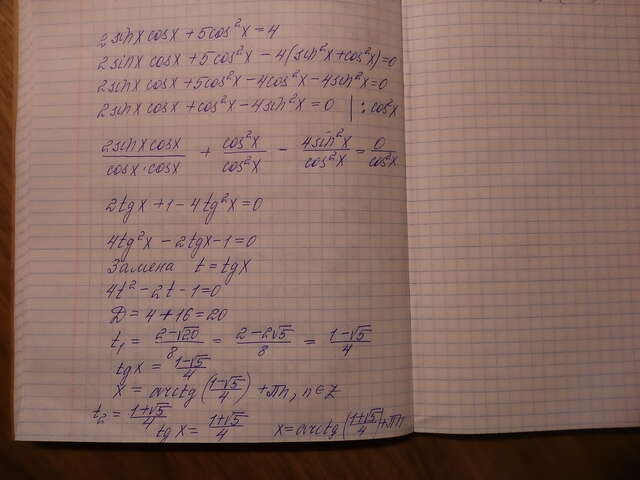 2sinx cosx + 5cos²x = 4
2sinx cosx + 5cos²x - 4(sin²x + cos²x) = 0
2sinx cosx + 5cos²x - 4cos²x - 4sin²x = 0
2sinx cosx + cos²x - 4sin²x = 0 | : cos²x
2sinx cosx / cosx · cosx + cos²x / cos²x - 4sin²x / cos²x = 0 / cos²x
2tgx + 1 - 4tg²x = 0
4tg²x - 2tgx - 1 = 0
Замена t = tgx
4t² - 2t - 1 = 0
D = 4 + 16 = 20
t₁ = (2 - √20) / 8 = (2 - 2√5) / 8 = (1 - √5) / 4
tgx = (1 - √5) / 4
x = arctg((1 - √5) / 4) + πn, n ∈ Z
t₂ = (1 + √5) / 4
tgx = (1 + √5) / 4 x = arctg((1 + √5) / 4) + πn